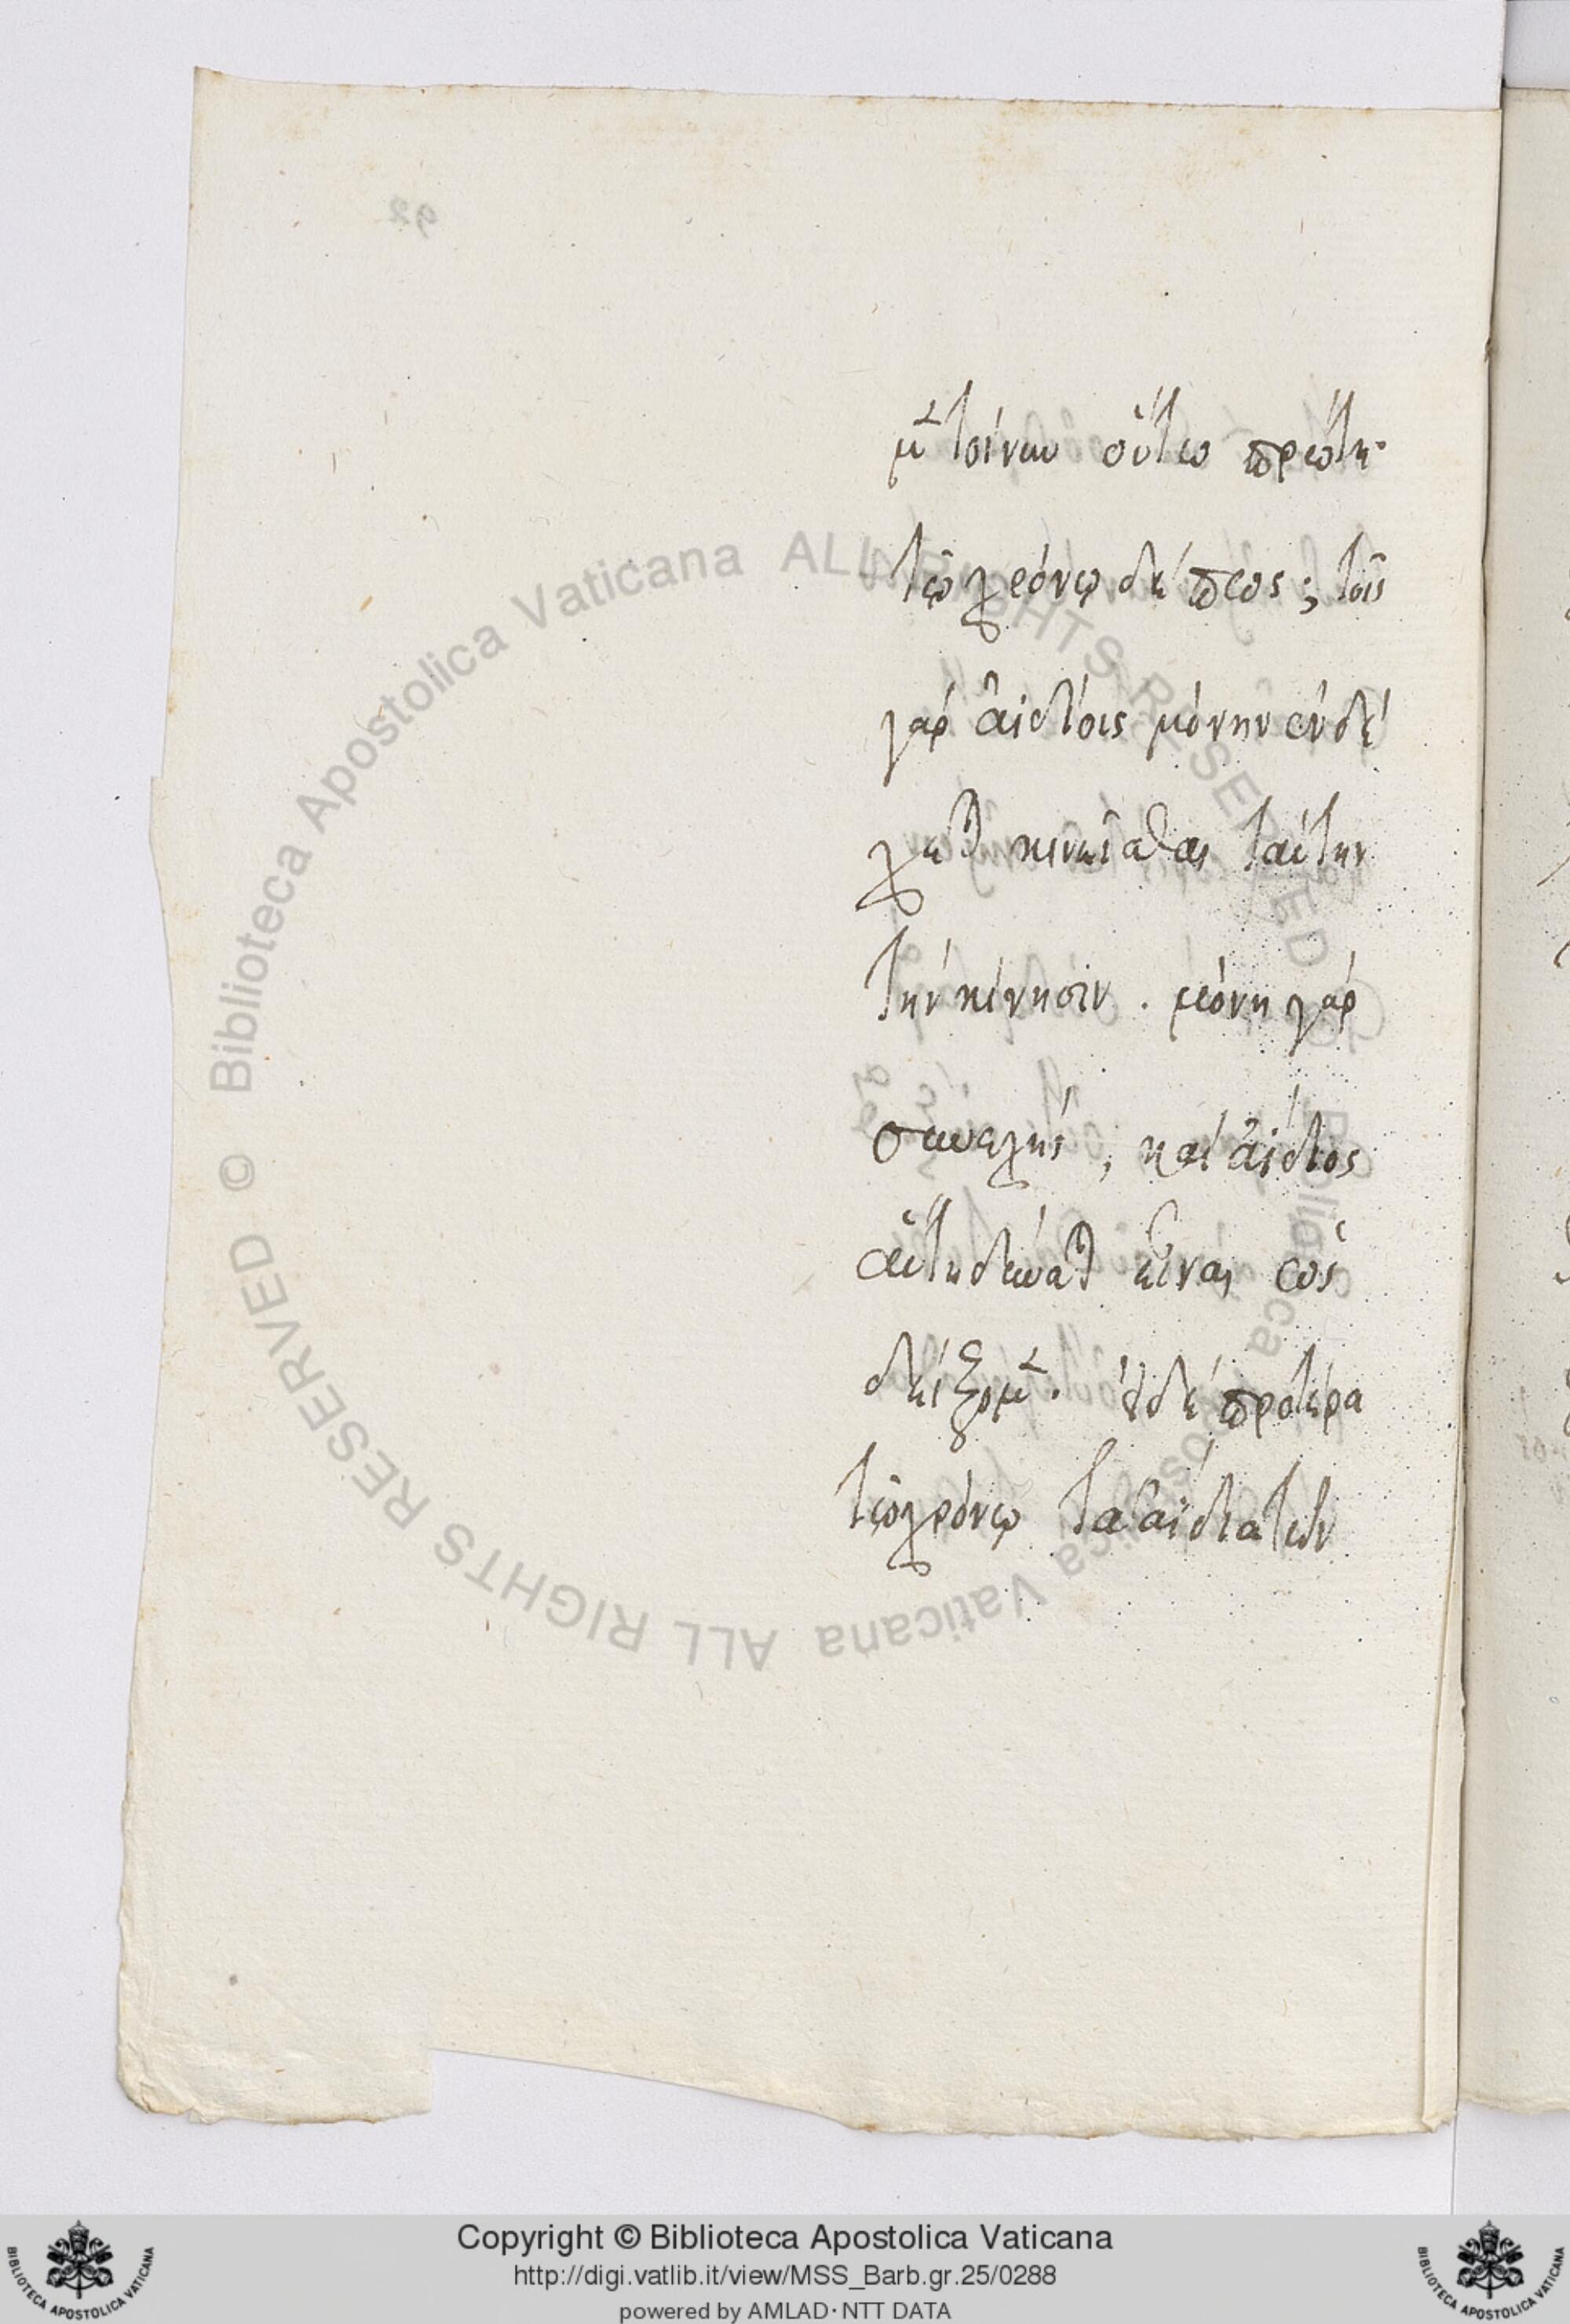 μὲν τοίνυν οὕτω πρώτη·
τῷ χρόνῳ δὲ πῶς; τοῖς
γὰρ ἀϊδίοις μόνην ἐνδέ
χεται κινεῖσθαι ταύτην
τὴν κίνησιν. μόνη γὰρ
συνεχής, καὶ ἀΐδιος
αὕτη δύναται εἶναι ὡς
δείξομεν. εἰ δὲ πρότερα
τῷ χρόνῳ τὰ ἀΐδια τῶν
92
Biblioteca Apostolica Vaticana ALL RIGHTS RESERVED ©
Biblioteca Apostolica Vaticana ALL RIGHTS RESERVED ©
Copyright © Biblioteca Apostolica Vaticana
http://digi.vatlib.it/view/MSS_Barb.gr.25/0288
powered by AMLAD·NTT DATA
BIBLIOTECA APOSTOLICA VATICANA
BIBLIOTECA APOSTOLICA VATICANA